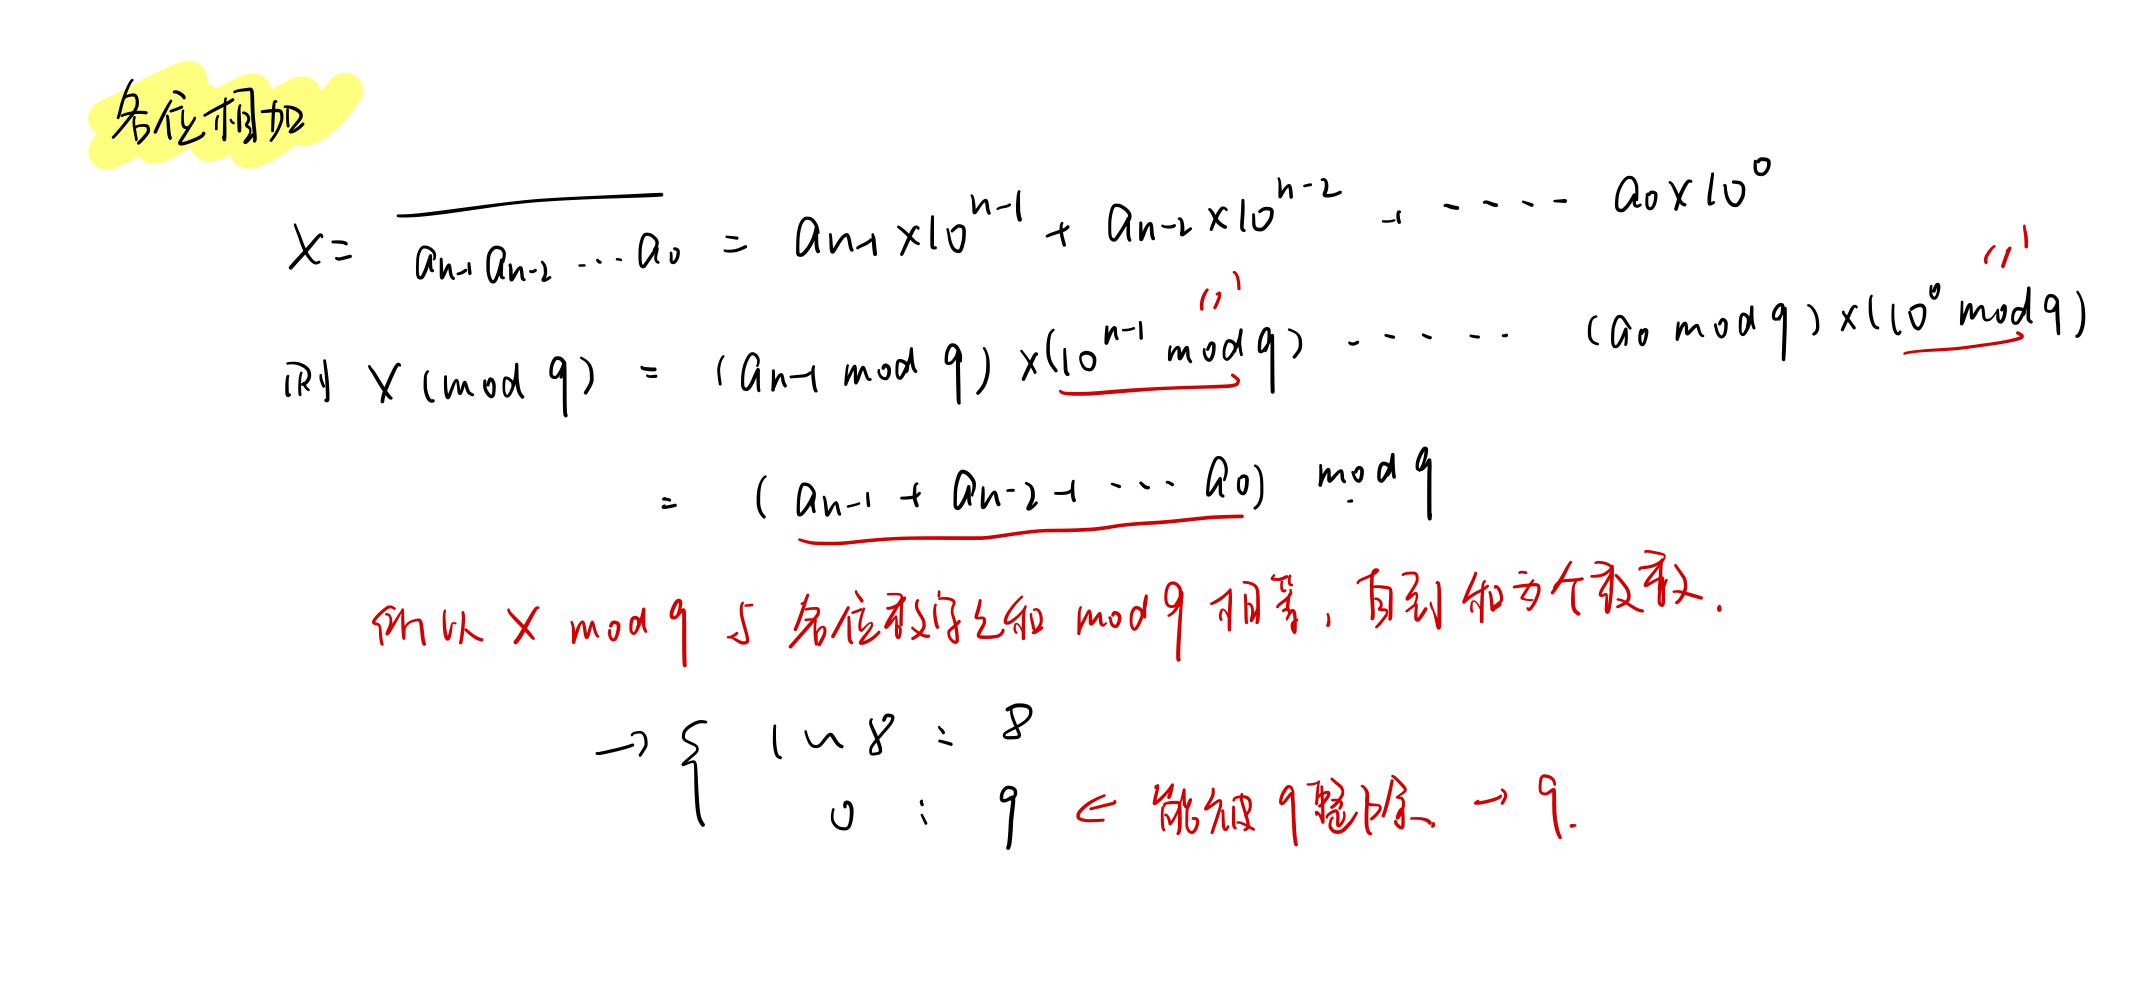 各位相加
X = a_{n-1} a_{n-2} ... a_0 = a_{n-1} × 10^{n-1} + a_{n-2} × 10^{n-2} + ..... a_0 × 10^0
则 X (mod 9) = (a_{n-1} mod 9) × (10^{n-1} mod 9) ..... (a_0 mod 9) × (10^0 mod 9)
"1 "1
= (a_{n-1} + a_{n-2} + ... a_0) mod 9
所以 X mod 9 与 各位数字之和 mod 9 相等, 直到和为个数数.
→ { 1~8 : 8
0 : 9 ← 能被9整除 → 9.